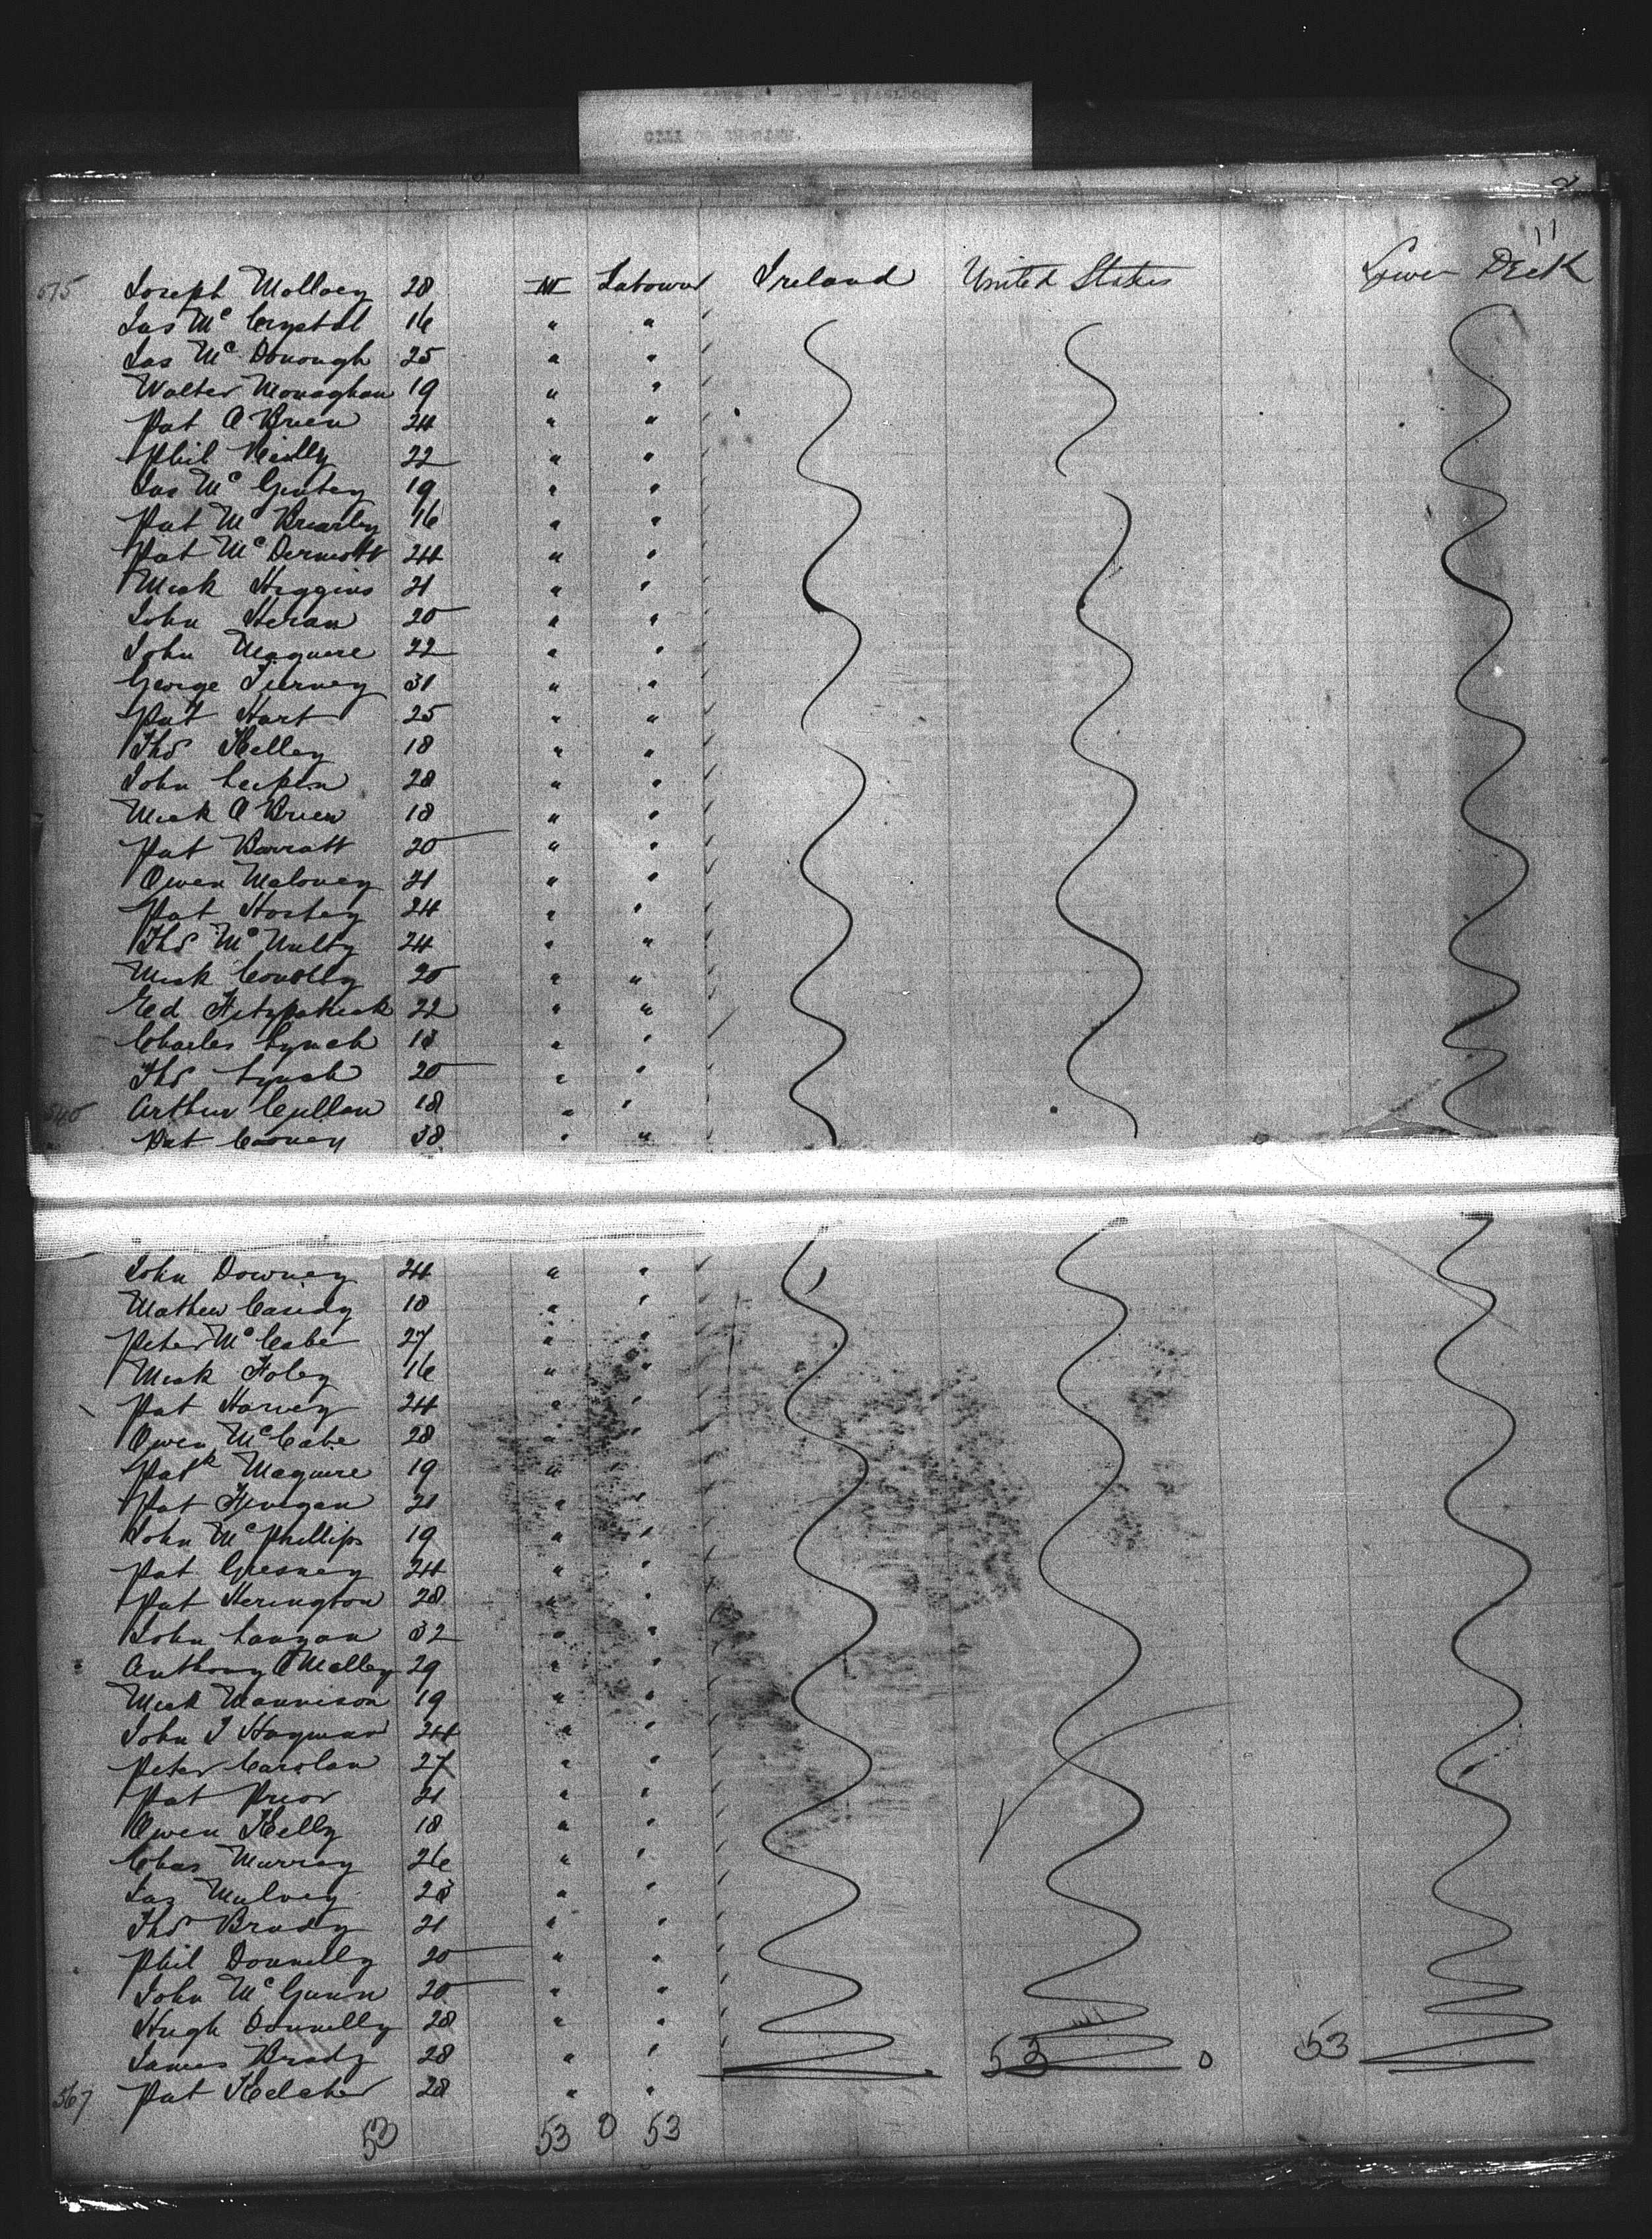 11
515 Joseph Molloey 28 M Labourer Ireland United States Lower Deck
Jas Mc Crystal 16 " "
Jas Mc Donough 25 " "
Walter Monaghan 19 " "
Pat O Brien 24 " "
Phil Reilly 22 " "
Jas Mc Ginley 19 " "
Pat Mc Brearley 16 " "
Pat Mc Dermott 24 " "
Mick Higgins 21 " "
John Heran 20 " "
John Maguere 22 " "
George Tierney 31 " "
Pat Hart 25 " "
Thos Kelley 18 " "
John 28 " "
Mick O Brien 18 " "
Pat Barratt 20 " "
Owen Maloney 21 " "
Pat Hostey 24 " "
Thos Mc Nulty 24 " "
Mick Conolly 20 " "
Ed Fitzpatrick 22 " "
Charles Lynch 18 " "
Thos Lynch 20 " "
540 Arthur Cullen 18 " "
Pat Cooney 38 " "
John Downey 24 " "
Mathew Casidy 18 " "
Peter Mc Cabe 27 " "
Mick Foley 16 " "
Pat Harvey 24 " "
Owen Mc Cabe 28 " "
Patk Maguere 19 " "
Pat Finegan 21 " "
John Mc Phillips 19 " "
Pat 24 " "
Pat Herington 28 " "
John Langan 32 " "
Anthony O Malley 29 " "
Mick Mannison 19 " "
John J Hayman 24 " "
Peter Carolan 27 " "
Pat Prior 21 " "
Owen Kelly 18 " "
Chas Murray 26 " "
Jas Mulvey 28 " "
Thos Brady 21 " "
Phil Donnelly 20 " "
John Mc Gunn 20 " "
Hugh Donnelly 28 " "
James Brady 28 " " 53 0 53
567 Pat Kelcher 28 " "
53 53 0 53